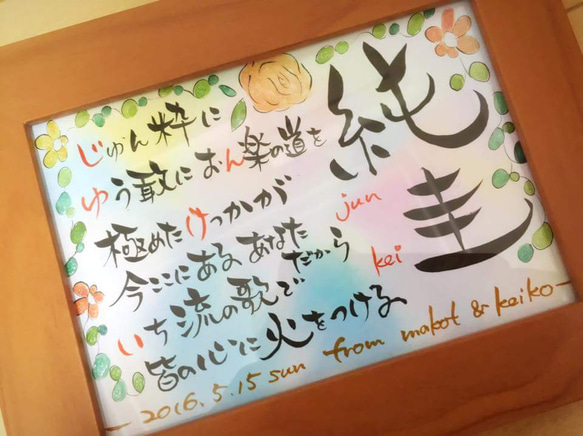 純圭
jun
kei
じゅん粋に
ゆう敢におん楽の道を
極めたけっかが
今ここにあるあなただから
いち流の歌で
皆の心に火をつける
2016.5.15 sun from makot & keiko